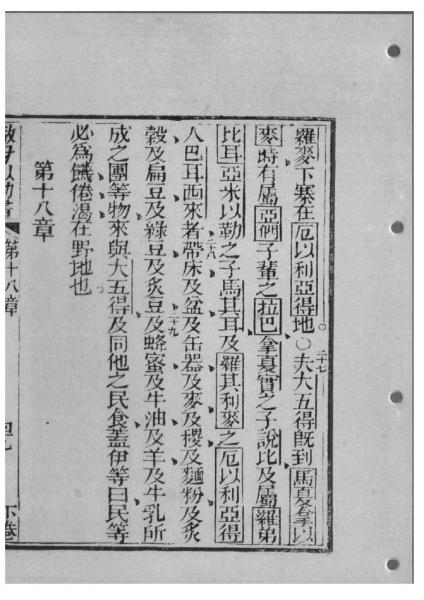 羅麥下寨在厄以利亞得地○二十七夫大五得既到馬夏拿以
麥時有屬亞們子輩之拉巴拿夏實之子說比及屬羅弟
比耳亞米以勒之子馬其耳及羅其利麥之厄以利亞得
人巴耳西來者二十八帶床及盆及缶器及麥及稷及麵粉及炙
穀及扁豆及綠豆及炙豆二十九及蜂蜜及牛油及羊及牛乳所
成之團等物來與大五得及同他之民食蓋伊等曰民等
必為饑倦渴在野地也
第十八章
第十八章
下卷